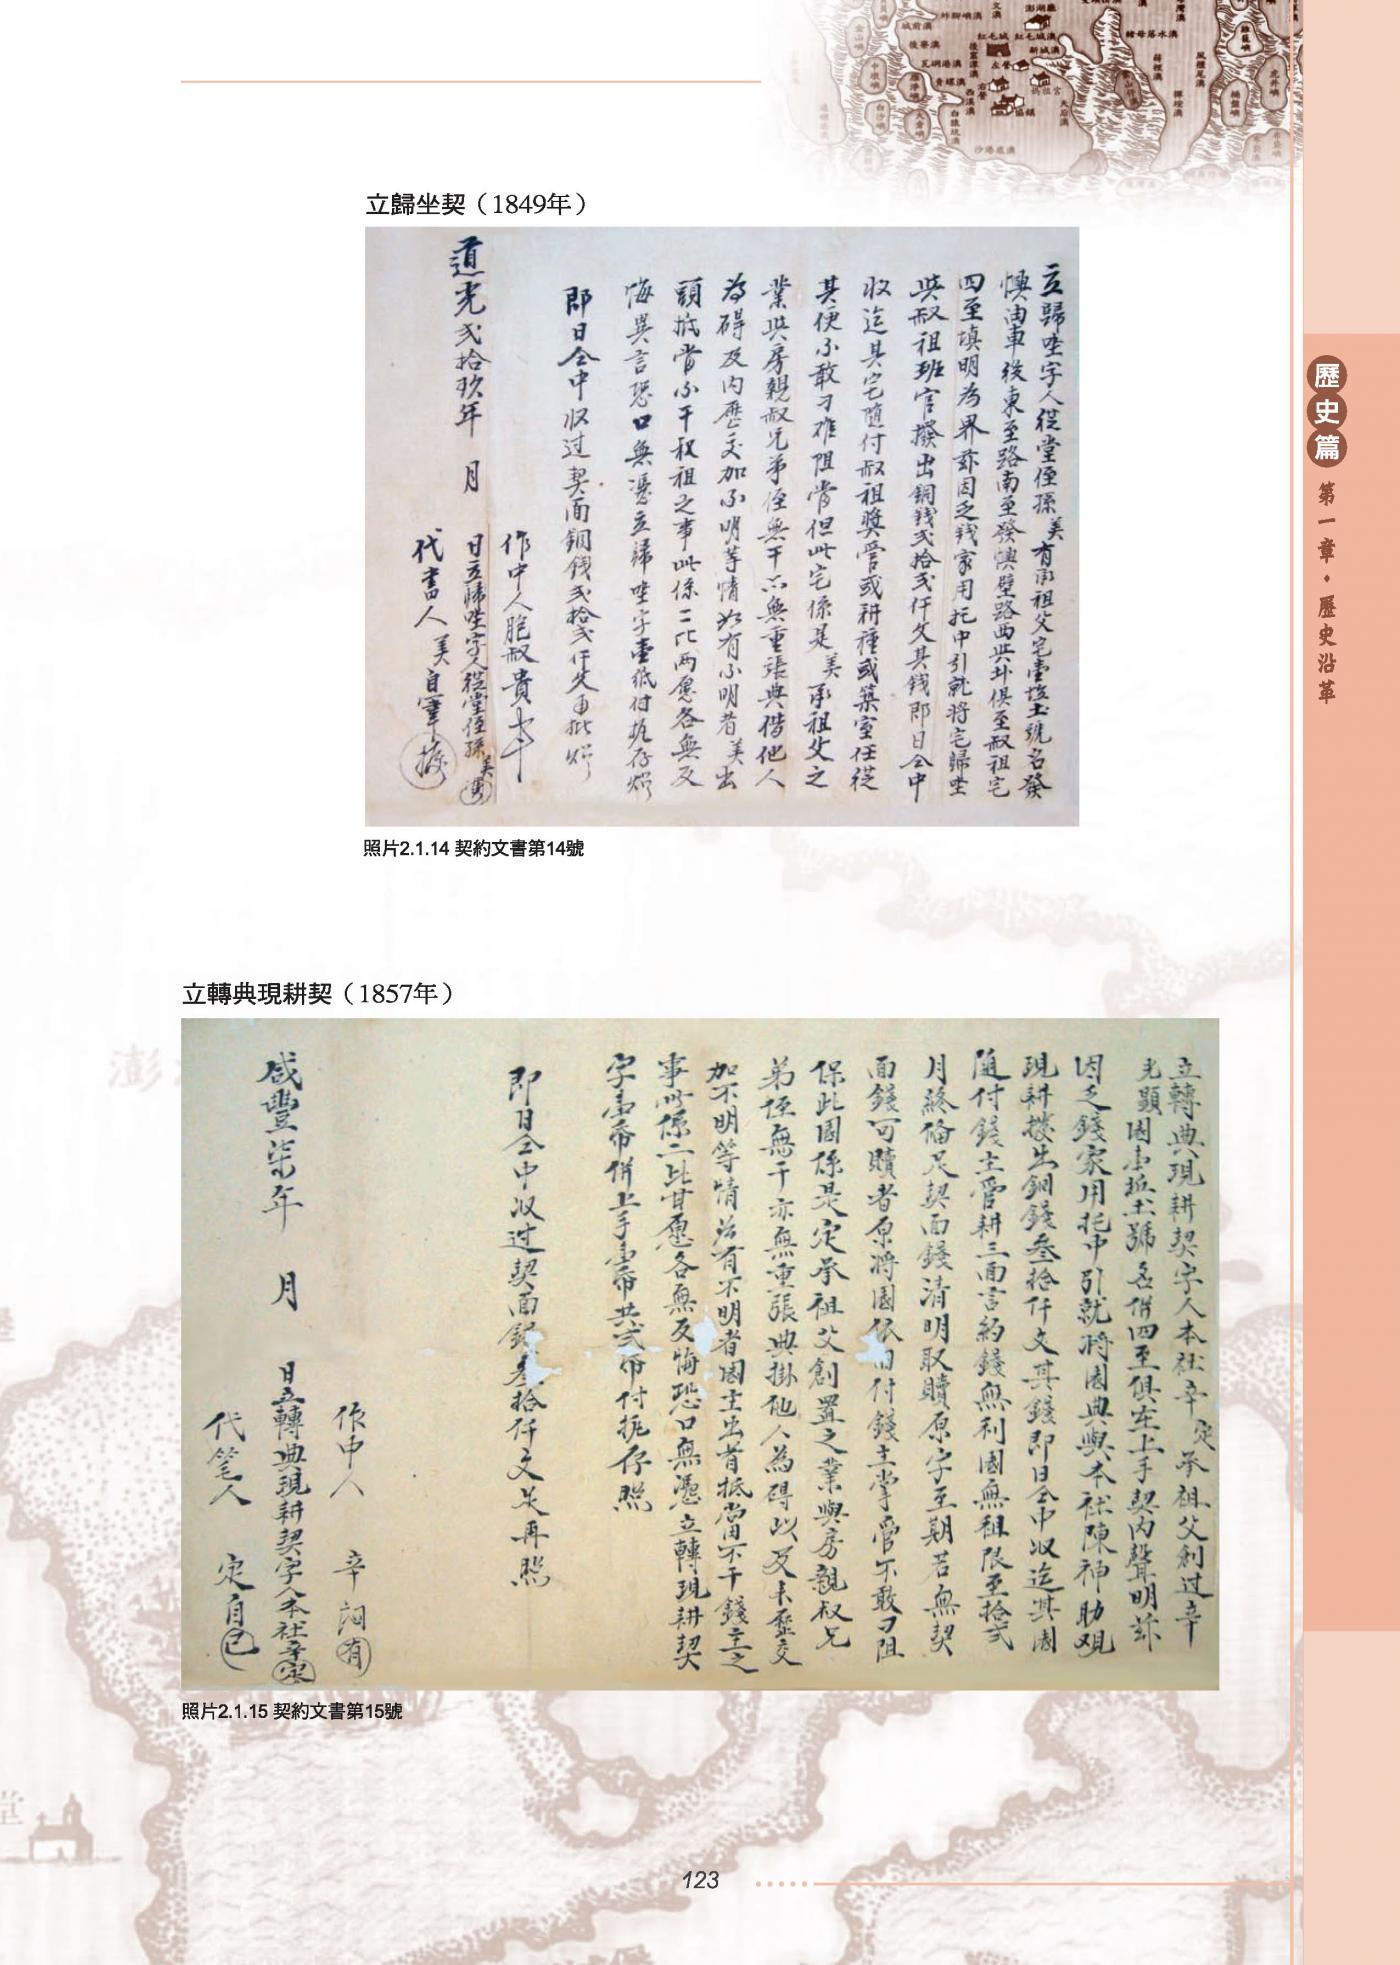 立歸坐契（1849年）
立歸坐字人從堂侄孫美有承祖父宅壹坵土號名發
懊油車後東至路南至發懊壁路西與北俱至叔祖宅
四至填明為界茲因乏錢家用托中引就將宅歸坐
與叔祖班官撥出銅錢弍拾弍仟文其錢即日仝中
收迄其宅隨付叔祖掌管或耕種或築室任從
其便不敢刁难阻当但此宅係是美承祖父之
業與房親叔兄弟侄無干亦無重張典借他人
為碍及内歷交加不明等情如有不明者美出
頭抵当不干叔祖之事此係二比两愿各無反
悔異言恐口無憑立歸坐字壹紙付执存炤
即日仝中收过契面銅錢弍拾弍仟文再批炤
作中人胞叔貴
道光弍拾玖年 月 日立歸坐字人從堂侄孫美
代書人美自筆
照片2.1.14 契約文書第14號
立轉典現耕契（1857年）
立轉典現耕契字人本社辛定承祖父創过辛
光顯園壹坵土號名併四至俱在上手契内聲明茲
因乏錢家用托中引就將園典與本社陳神助观
現耕撥出銅錢叁拾仟文其錢即日仝中收迄其園
隨付錢主管耕三面言約錢無利園無租限至拾弍
月終俻足契面錢清明取贖原字至期若無契
面錢可贖者原将園依旧付錢主掌管不敢刁阻
保此園係是定承祖父創置之業與房親叔兄
弟侄無干亦無重張典掛他人為碍以及未歷交
加不明等情若有不明者園主出首抵當不干錢主之
事此係二比甘愿各無反悔恐口無憑立轉現耕契
字壹帋併上手壹帋共弍帋付执存照
即日仝中收过契面錢叁拾仟文足再照
作中人 辛詞有
咸豐柒年 月 日立轉典現耕契字人本社辛定
代笔人 定自己
照片2.1.15 契約文書第15號
歷史篇
第一章・歷史沿革
123